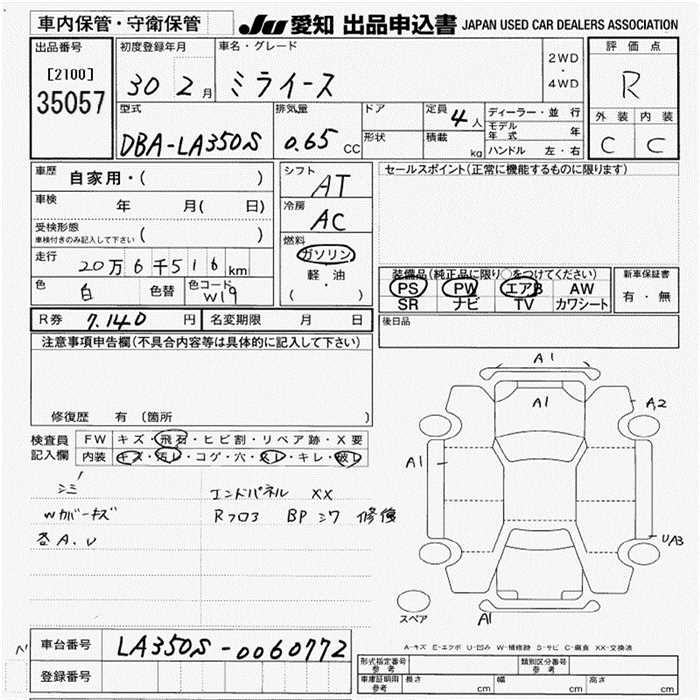 車内保管・守衛保管
JU 愛知 出品申込書 JAPAN USED CAR DEALERS ASSOCIATION
出品番号
[2100]
35057
初度登録年月
30 2月
車名・グレード
ミライース
2WD
・
4WD
評価点
R
外装 内装
C C
型式
DBA-LA350S
排気量
0.65 CC
ドア
形状
定員 4人
積載 kg
ディーラー・並行
モデル年式 年
ハンドル 左・右
車歴 自家用・( )
車検 年 月( 日)
受検形態
車検付きのみ記入して下さい ( )
走行
20万6千516km
色 白 色替 色コード W19
シフト
AT
冷房
AC
燃料
ガソリン
軽・油
( )
セールスポイント(正常に機能するものに限ります)
装備品(純正品に限り○をつけてください)
PS PW エアB AW
SR ナビ TV カワシート
新車保証書
有・無
後日品
R券 7.140 円 名変期限 月 日
注意事項申告欄(不具合内容等は具体的に記入して下さい)
修復歴 有 〔箇所 〕
検査員
記入欄
FW キズ・飛石・ヒビ割・リペア跡・X要
内装 キズ・汚レ・コゲ・穴・スレ・キレ・破レ
シミ
Wカバーキズ
各A.U
エンドパネル XX
Rフロア BPシワ 修復
A1
A1
A2
A1
U/A3
A1
スペア
A-キズ E-エクボ U-凹み W-補修跡 S-サビ C-腐食 XX-交換済
車台番号 LA350S-0060772
登録番号
形式指定番号
参考
類別区分番号
参考
車庫証明用
参考
長さ cm 幅 cm 高さ cm